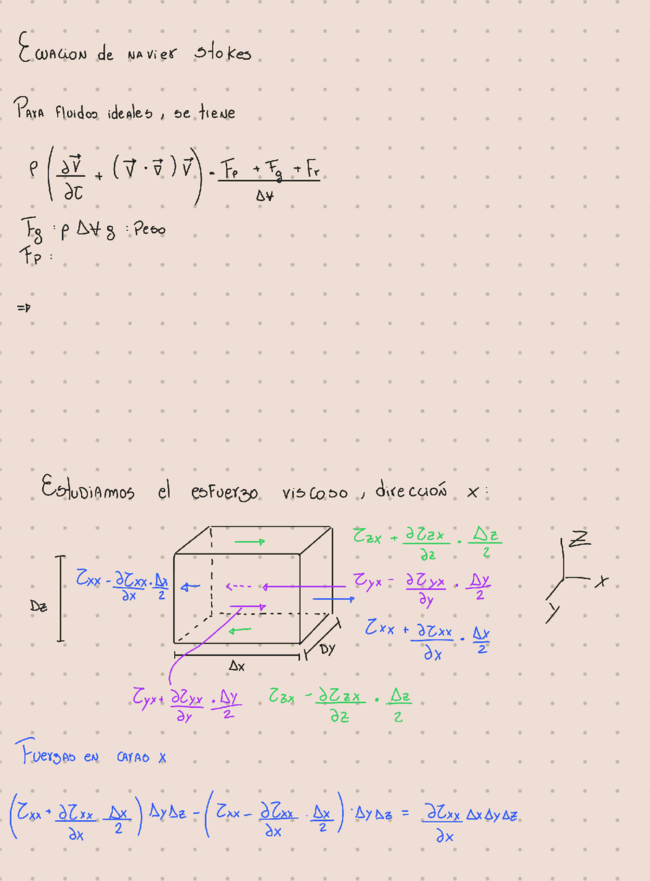 Ecuacion de navier stokes
Para fluidos ideales, se tiene
ρ (∂V⃗/∂τ + (V⃗ · ∇⃗) V⃗) = (Fp + Fg + Fr)/ΔV
Fg : ρ ΔV g : Peso
Fp :
⇒
Estudiamos el esfuerzo viscoso, dirección x:
τzx + ∂τzx/∂z · Δz/2
τxx - ∂τxx/∂x · Δx/2
τyx - ∂τyx/∂y · Δy/2
τxx + ∂τxx/∂x · Δx/2
Z
X
Y
Dz
Δx
Dy
τyx + ∂τyx/∂y · Δy/2
τzx - ∂τzx/∂z · Δz/2
Fuerzas en caras x
(τxx + ∂τxx/∂x · Δx/2) ΔyΔz - (τxx - ∂τxx/∂x · Δx/2) · ΔyΔz = ∂τxx/∂x ΔxΔyΔz